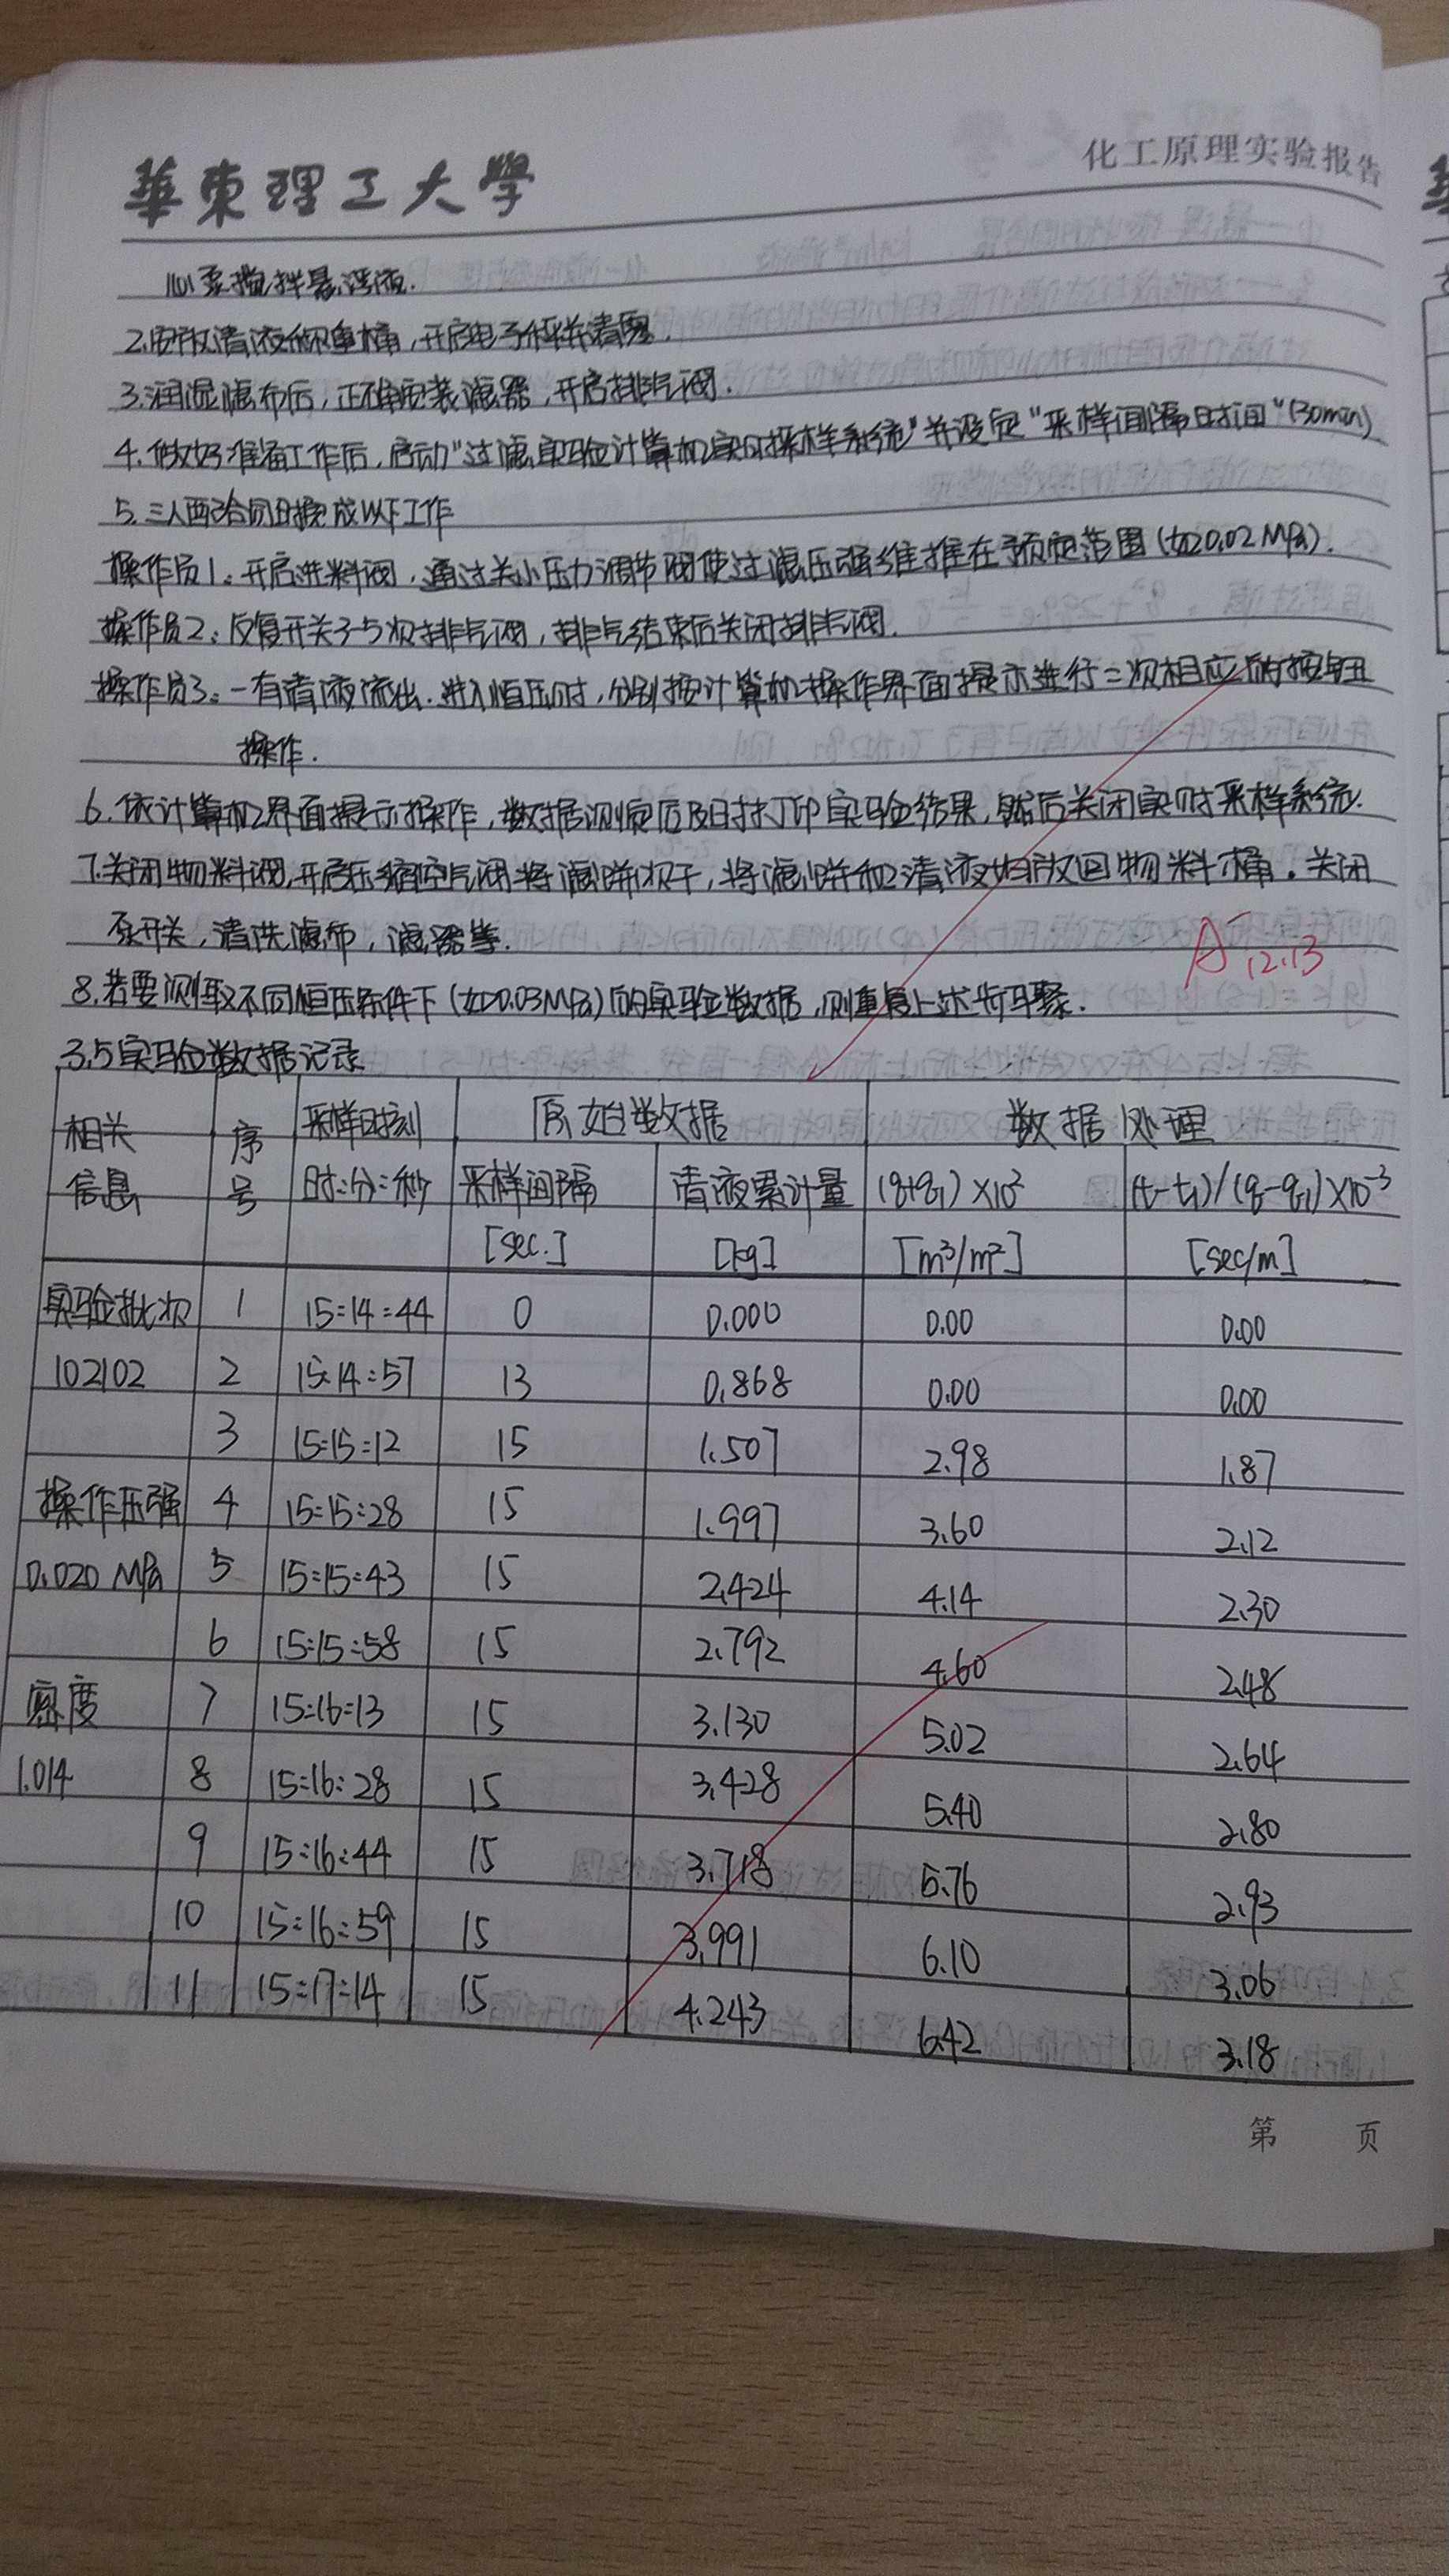 華東理工大學
化工原理实验报告
心泵搅拌悬浮液.
2.安放清液称重桶,开启电子秤并清零.
3.润湿滤布后,正确安装滤器,开启排气阀.
4.做好准备工作后,启动"过滤实验计算机实时采样系统"并设定"采样间隔时间"(30min)
5.三人配合同时完成以下工作
操作员1:开启进料阀,通过关小压力调节阀使过滤压强维持在预定范围(如0.02MPa).
操作员2:反复开关3-5次排气阀,排气结束后关闭排气阀.
操作员3:一有清液流出.进入恒压时,分别按计算机操作界面提示进行二次相应的按钮
操作.
6.依计算机界面提示操作,数据测定后及时打印实验结果,然后关闭实时采样系统.
7.关闭物料阀,开启压缩空气阀将滤饼吹干,将滤饼和清液均放回物料桶.关闭
泵开关,清洗滤布,滤器等.
A 12.13
8.若要测取不同恒压条件下(如0.03MPa)的实验数据,则重复上述步骤.
3.5实验数据记录
相关 序 采样时刻 原始数据 数据处理
信息 号 时:分:秒 采样间隔 清液累计量 (q+q1)×10² (t-t1)/(q-q1)×10⁻³
[sec.] [kg] [m³/m²] [sec/m]
实验批次 1 15:14:44 0 0.000 0.00 0.00
102102 2 15:14:57 13 0.868 0.00 0.00
3 15:15:12 15 1.507 2.98 1.87
操作压强 4 15:15:28 15 1.997 3.60 2.12
0.020 MPa 5 15:15:43 15 2.424 4.14 2.30
6 15:15:58 15 2.792 4.60 2.48
密度 7 15:16:13 15 3.130 5.02 2.64
1.014 8 15:16:28 15 3.428 5.40 2.80
9 15:16:44 15 3.718 5.76 2.93
10 15:16:59 15 3.991 6.10 3.06
11 15:17:14 15 4.243 6.42 3.18
第 页